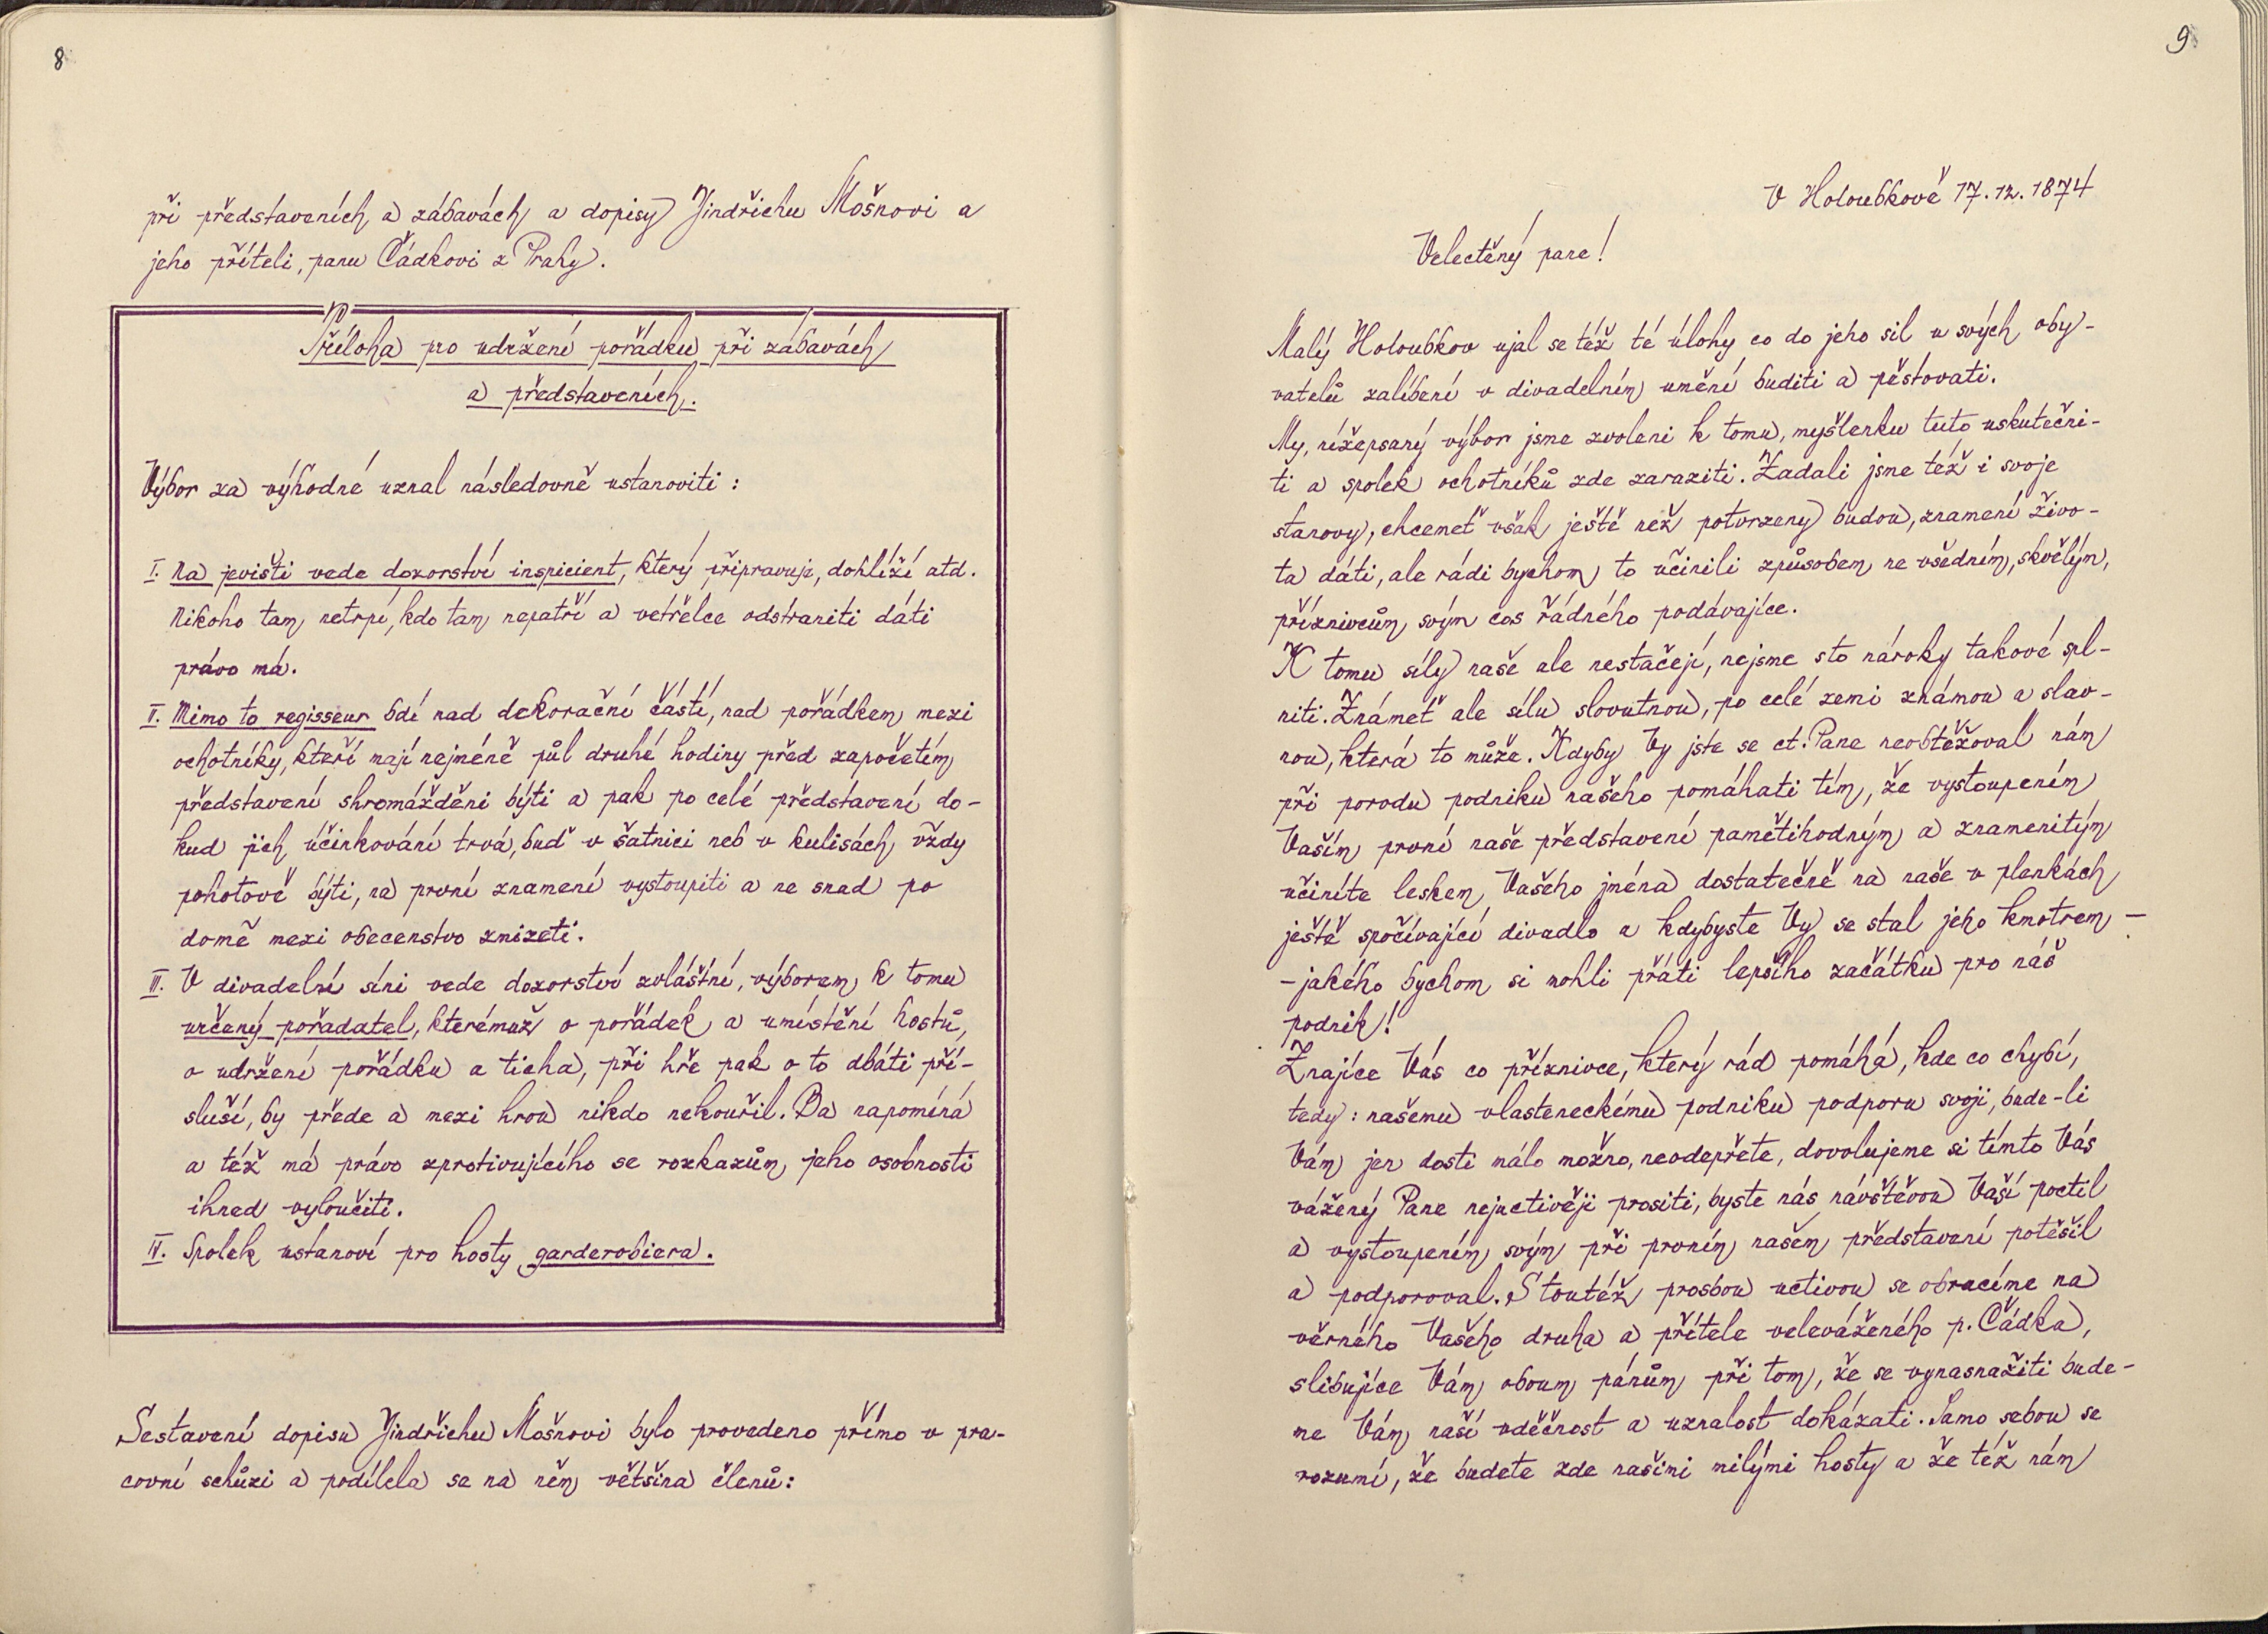 8
při představeních a zábavách a dopisy Jindřichu Mošnovi a
jeho příteli, panu Čádkovi z Prahy.
Příloha pro udržení pořádku při zábavách
a představeních.
Výbor za výhodné uznal následovně ustanoviti:
I. Na jevišti vede dozorství inspicient, který připravuje, dohlíží atd.
Nikoho tam netrpí, kdo tam nepatří a vetřelce odstraniti dáti
právo má.
II. Mimo to regisseur bdí nad dekorační částí, nad pořádkem mezi
ochotníky, kteří mají nejméně půl druhé hodiny před započetím
představení shromážděni býti a pak po celé představení do-
kud jich účinkování trvá, buď v šatnici neb v kulisách vždy
pohotově býti, na první znamení vystoupiti a ne snad po
domě mezi obecenstvo zmizeti.
III. V divadelní síni vede dozorství zvláštní, výborem k tomu
určený pořadatel, kterémuž o pořádek a umístění hostů,
o udržení pořádku a ticha, při hře pak o to dbáti pří-
sluší, by přede a mezi hrou nikdo nekouřil. Da napomíná
a též má právo zprotivujícího se rozkazům jeho osobnosti
ihned vyloučiti.
IV. Spolek ustanoví pro hosty garderobiera.
Sestavení dopisu Jindřichu Mošnovi bylo provedeno přímo v pra-
covní schůzi a podílela se na něm většina členů:
9
V Holoubkově 17.12.1874
Velectěný pane!
Malý Holoubkov ujal se též té úlohy co do jeho sil u svých oby-
vatelů zalíbení v divadelním umění buditi a pěstovati.
My, nížepsaný výbor jsme zvoleni k tomu, myšlenku tuto uskutečni-
ti a spolek ochotníků zde zaraziti. Zadali jsme též i svoje
stanovy, chcemeť však ještě než potvrzeny budou, znamení živo-
ta dáti, ale rádi bychom to učinili způsobem ne všedním, skvělým,
příznivcům svým cos řádného podávajíce.
K tomu síly naše ale nestačejí, nejsme sto nároky takové spl-
niti. Známeť ale sílu slovutnou, po celé zemi známou a slav-
nou, která to může. Kdyby Vy jste se ct. Pane neobtěžoval nám
při porodu podniku našeho pomáhati tím, že vystoupením
Vaším první naše představení pamětihodným a znamenitým
učiníte leskem Vašeho jména dostatečně na naše v plenkách
ještě spočívající divadlo a kdybyste Vy se stal jeho kmotrem –
– jakého bychom si mohli přáti lepšího začátku pro náš
podnik!
Znajíce Vás co příznivce, který rád pomáhá, kde co chybí,
tedy: našemu vlasteneckému podniku podporu svoji, bude-li
Vám jen dosti málo možno, neodepřete, dovolujeme si tímto Vás
vážený Pane nejuctivěji prositi, byste nás návštěvou Vaší poctil
a vystoupením svým při prvním našem představení potěšil
a podporoval. S toutéž prosbou uctivou se obracíme na
věrného Vašeho druha a přítele veleváženého p. Čádka,
slibujíce Vám oboum pánům při tom, že se vynasnažiti bude-
me Vám naší vděčnost a uznalost dokázati. Samo sebou se
rozumí, že budete zde našimi milými hosty a že též nám